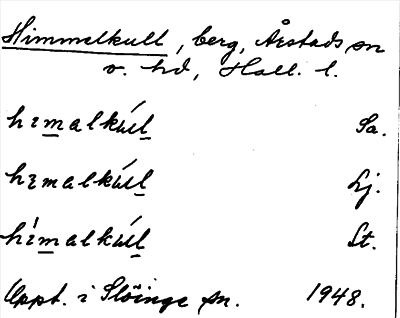 Himmelkull, berg, Årstads sn
v. hd, Hall. l.
hɪmalkúl Sa.
hɪmalkúl Lj.
hímalkúl St.
Uppt. i Slöinge sn. 1948.